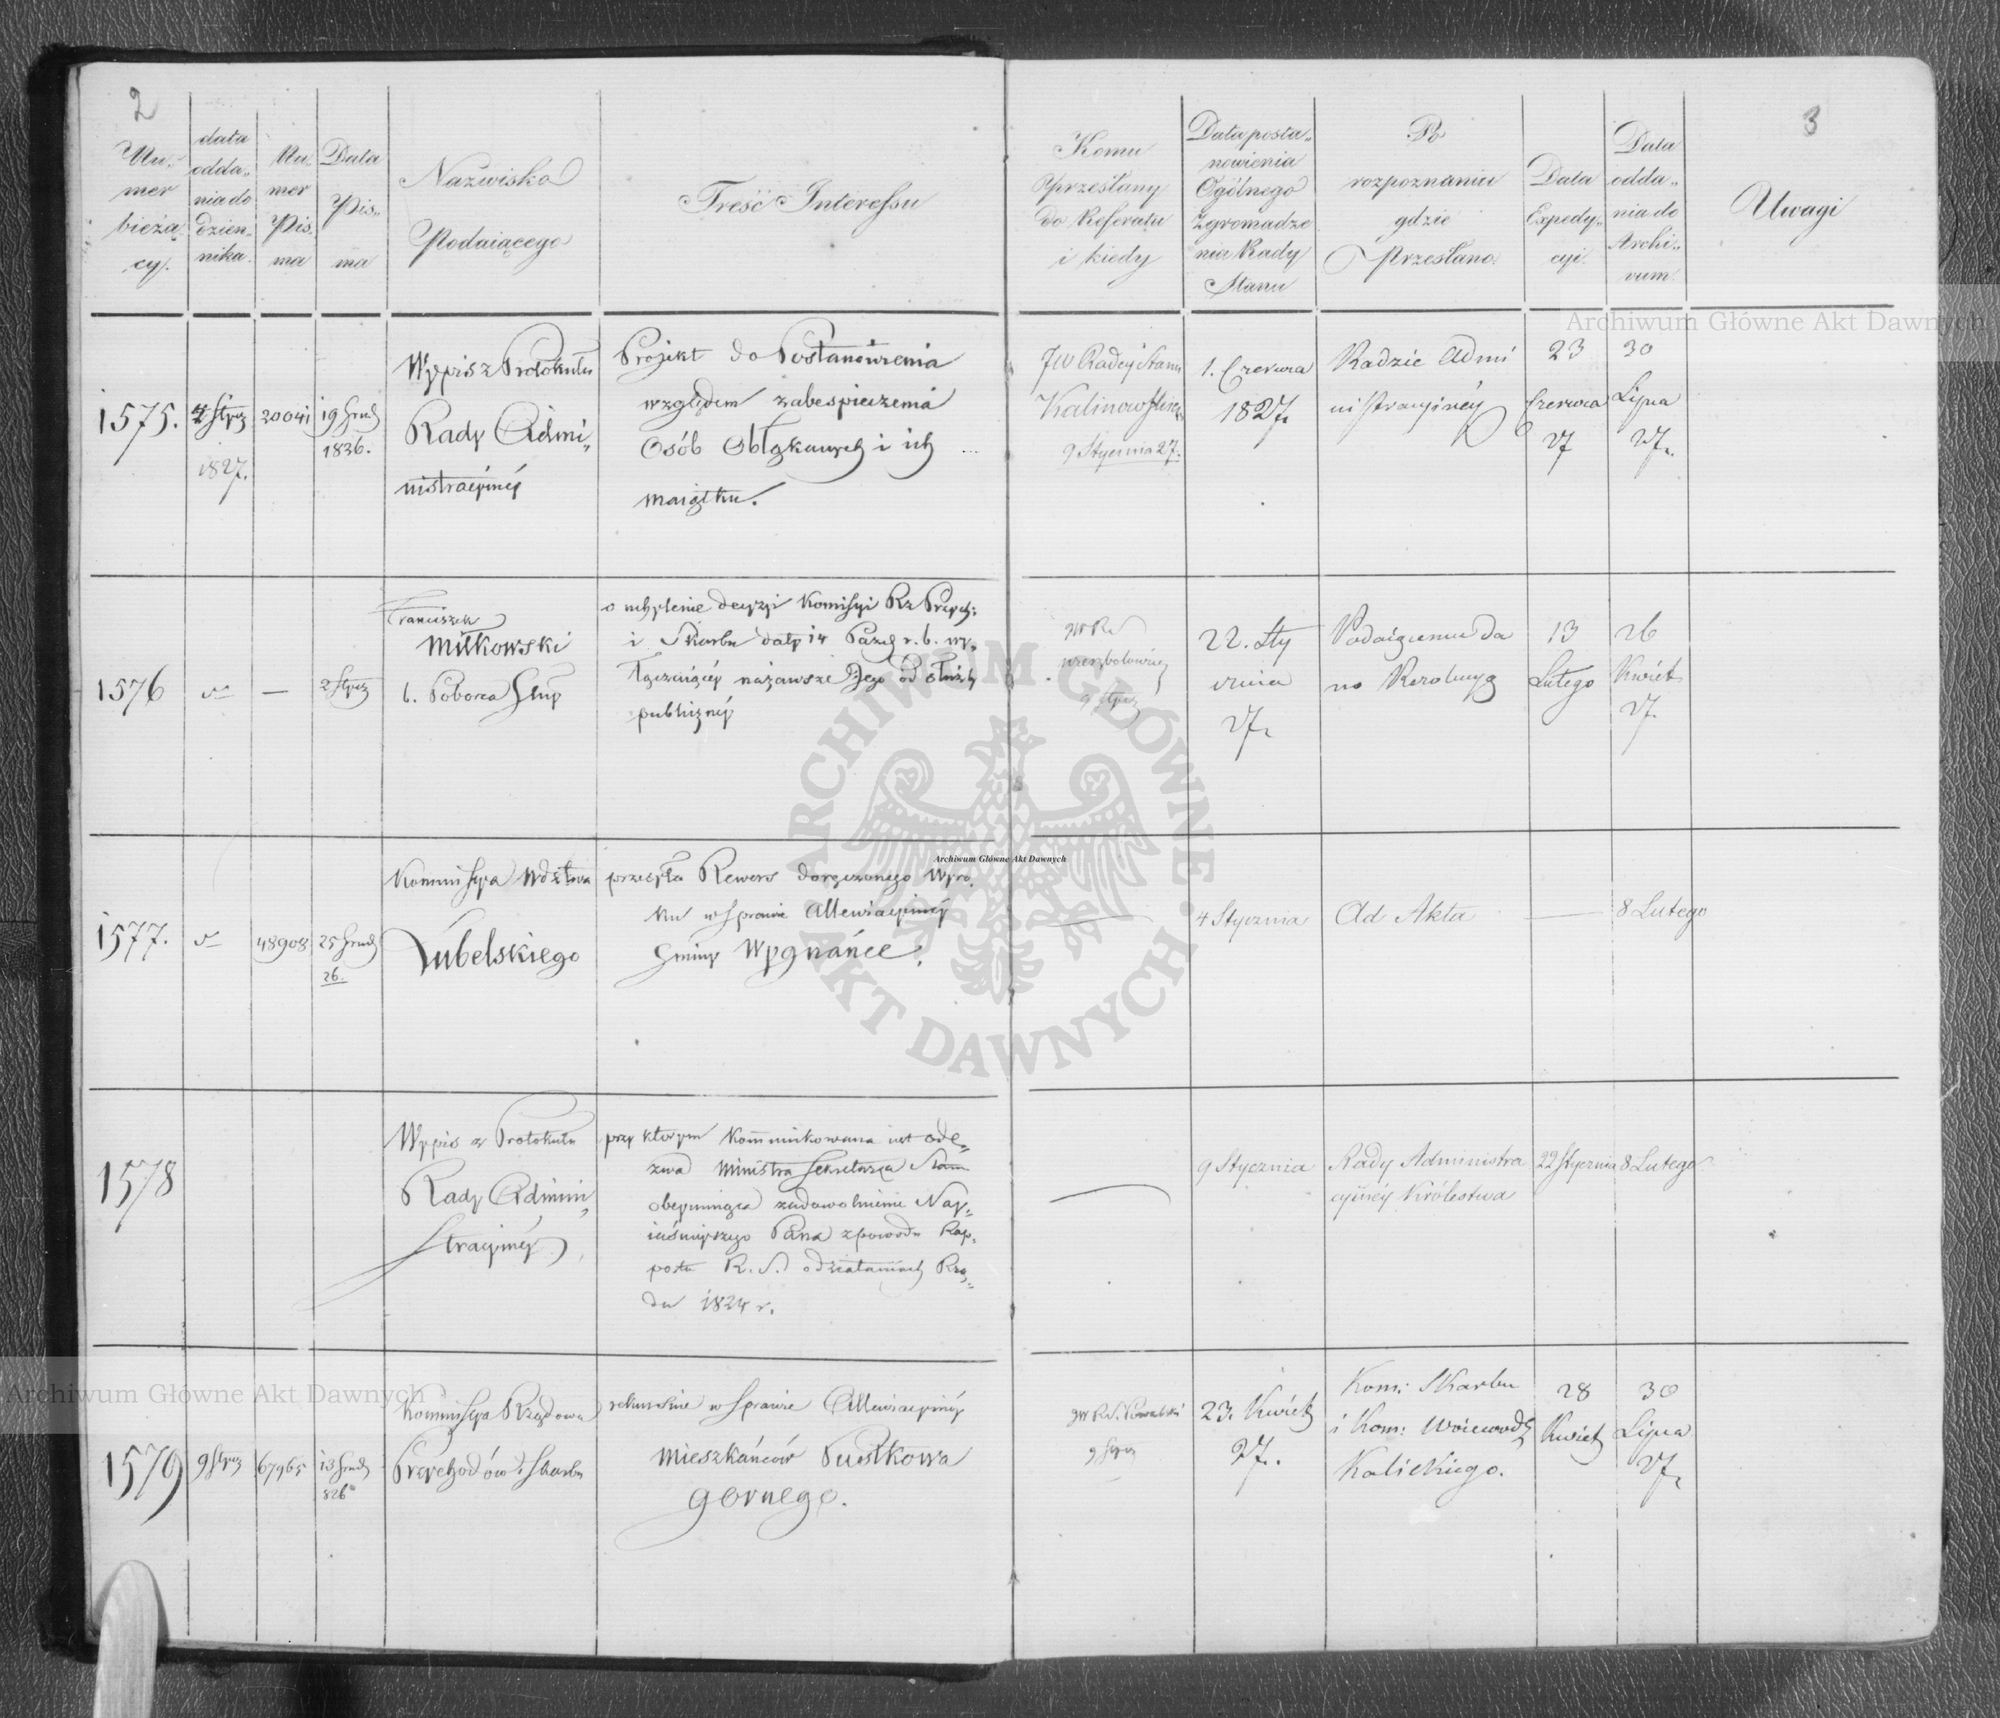 2
Nu-
mer
bieżą-
cy.
data
odda-
nia do
dzien-
nika.
Nu-
mer
Pis-
ma
Data
Pis-
ma
Nazwisko
Podaiącego
Treść Interessu
Komu
przesłany
do Referatu
i kiedy
Data posta-
nowienia
Ogólnego
Zgromadze
nia Rady
Stanu
Po
rozpoznaniu
gdzie
Przesłano.
Data
Expedy-
cyi.
Data
odda-
nia do
Archi-
vum.
Uwagi
3
1575.
4 Stycz
1827.
20041
19 Grud
1836.
Wypis z Protokułu
Rady Admi-
nistracyinéy
Projekt do Postanowienia
względem zabespieczenia
Osób Obłąkanych i ich
maiątku.
JW Radcy Stanu
Kalinowskie
9 Stycznia 27.
1. Czerwca
1827.
Radzie Admi
nistracyinéy
23
Czerwca
27
30
Lipca
27.
1576
—
2 Stycz
Franciszek
Miłkowski
b. Poborca Skup
o uchylenie decyzyi Komissyi Rz Przych:
i Skarbu daty 14 Paźd r. b. wy-
łączaiącéy na zawsze Jego od służby
publicznéy
JW RS
9 Stycz
22. Sty
cznia
27.
Podaiącemu da
no Rezolucyą
13
Lutego
26
Kwiet
27.
1577.
48908
25 Grud
26.
Kommissya Wdztwa
Lubelskiego
przesyła Rewers doręczonego Wyro
ku w Sprawie Allewiacyinéy
Gminy Wygnańce.
—
4 Stycznia
Ad Akta
—
8 Lutego
1578
Wypis z Protokułu
Rady Admini-
stracyinéy
przy którym Kommunikowana iest ode-
zwa Ministra Sekretarza Stanu
obeymuiąca zadowolnienie Nay-
iaśnieyszego Pana z powodu Rap-
portu R. S. o działaniach Rzą-
du 1824 r.
—
9 Stycznia
Rady Administra
cyinéy Królestwa
22 Stycznia
8 Lutego
1579
9 Stycz
67965
13 Grud
826
Kommissya Rządowa
Przychodów i Skarbu
w Sprawie Allewiacyinéy
Mieszkańców Pustkowa
gornego.
JW R.S. Kowalski
9 Stycz
23. Kwiet
27.
Kom: Skarbu
i Kom: Woiewodz
Kaliskiego.
28
Kwiet
30
Lipca
27.
Archiwum Główne Akt Dawnych
ARCHIWUM GŁÓWNE AKT DAWNYCH
Archiwum Główne Akt Dawnych
Archiwum Główne Akt Dawnych